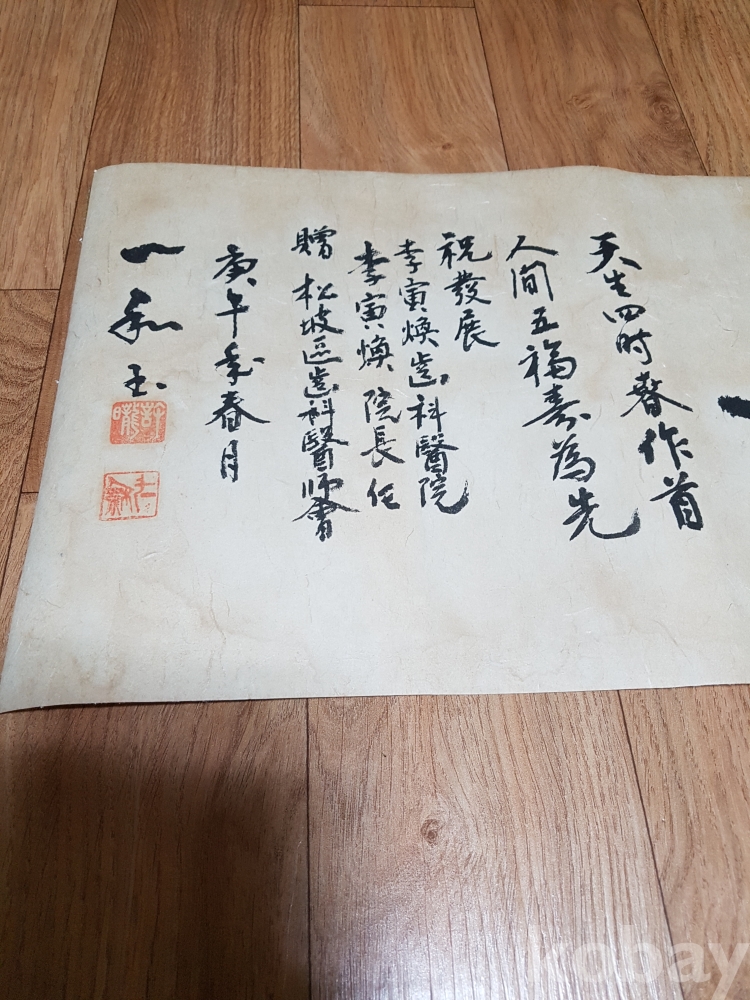 天生四时春作首
人間五福壽為先
祝發展
李寅煥齒科醫院
李寅煥 院長任
贈 松坡區齒科醫師會
庚午年春月
一和
kobay